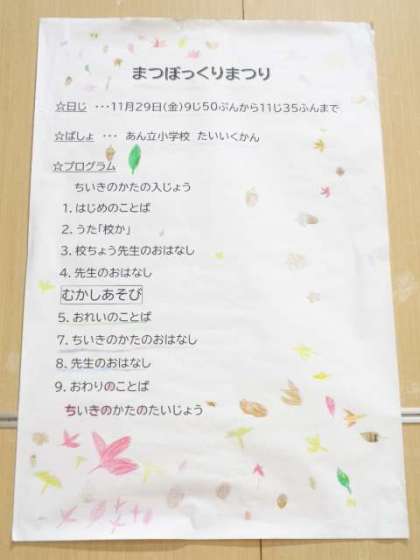 まつぼっくりまつり
☆日じ ・・・11月29日(金)9じ50ぷんから11じ35ふんまで
☆ばしょ ・・・ あん立小学校 たいいくかん
☆プログラム
ちいきのかたの入じょう
1. はじめのことば
2. うた「校か」
3. 校ちょう先生のおはなし
4. 先生のおはなし
むかしあそび
5. おれいのことば
7. ちいきのかたのおはなし
8. 先生のおはなし
9. おわりのことば
ちいきのかたのたいじょう